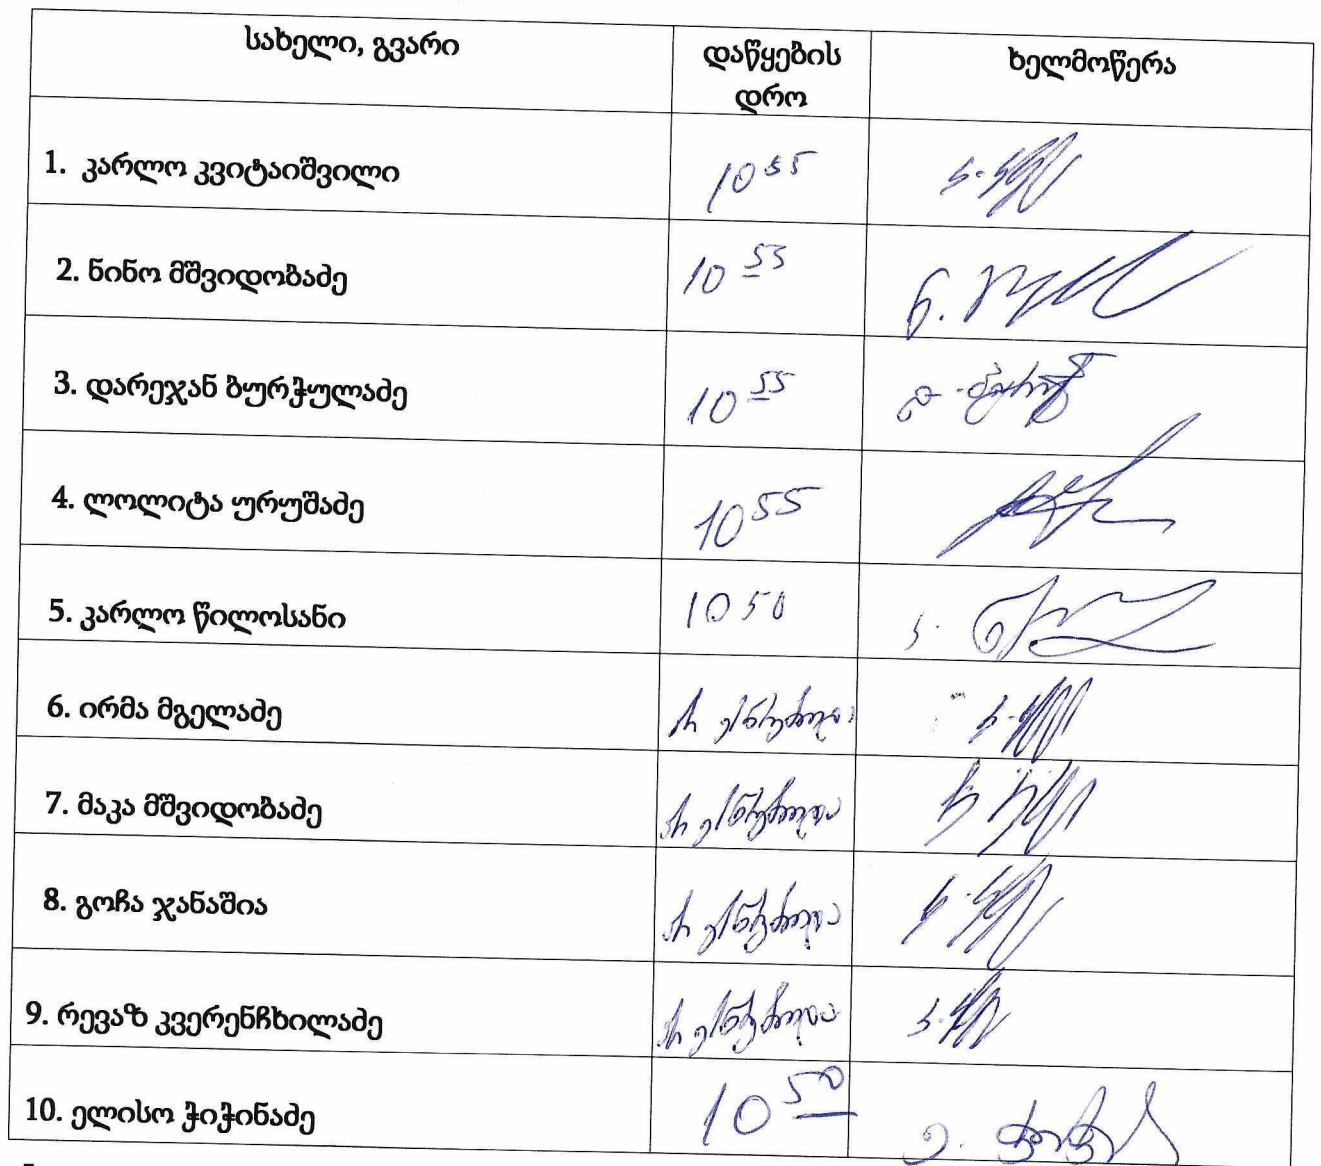 სახელი, გვარი
დაწყების
დრო
ხელმოწერა
1. კარლო კვიტაიშვილი 10 55
2. ნინო მშვიდობაძე 10 53
3. დარეჯან ბურჭულაძე 10 55
4. ლოლიტა ურუშაძე 10 55
5. კარლო წილოსანი 10 50
6. ირმა მგელაძე არ ესწრებოდა
7. მაკა მშვიდობაძე არ ესწრებოდა
8. გოჩა ჯანაშია არ ესწრებოდა
9. რევაზ კვერენჩხილაძე არ ესწრებოდა
10. ელისო ჭიჭინაძე 10 50